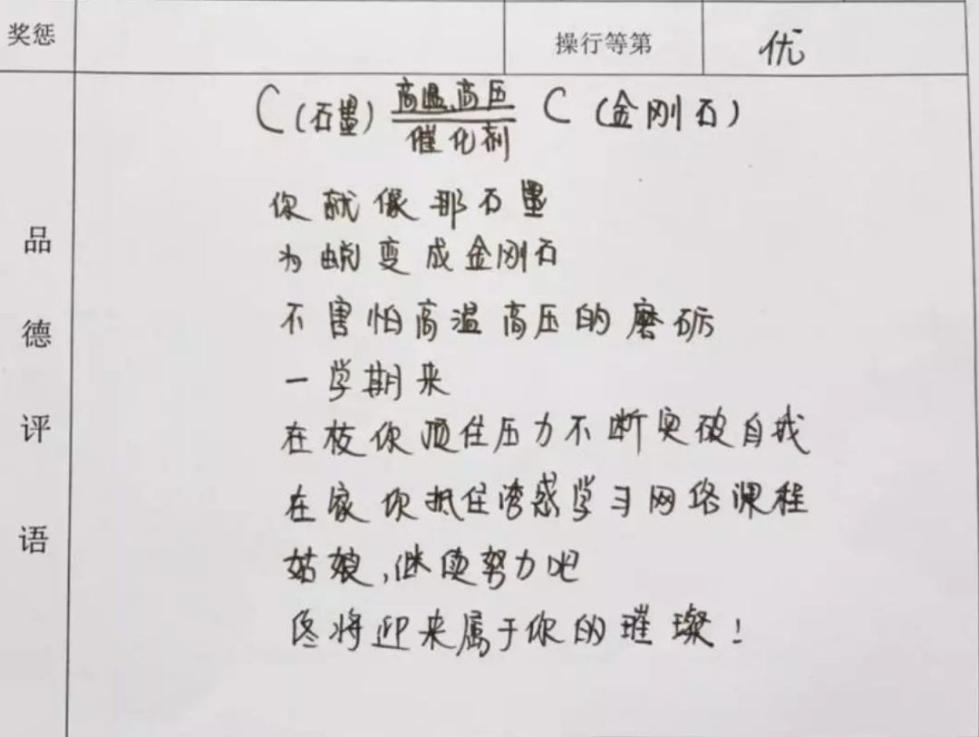 奖惩 操行等第 优
C(石墨) 高温,高压 C(金刚石)
催化剂
你就像那石墨
为蜕变成金刚石
不害怕高温高压的磨砺
一学期来
在校你顶住压力不断突破自我
在家你抵住诱惑学习网络课程
姑娘,继续努力吧
终将迎来属于你的璀璨!
品德评语